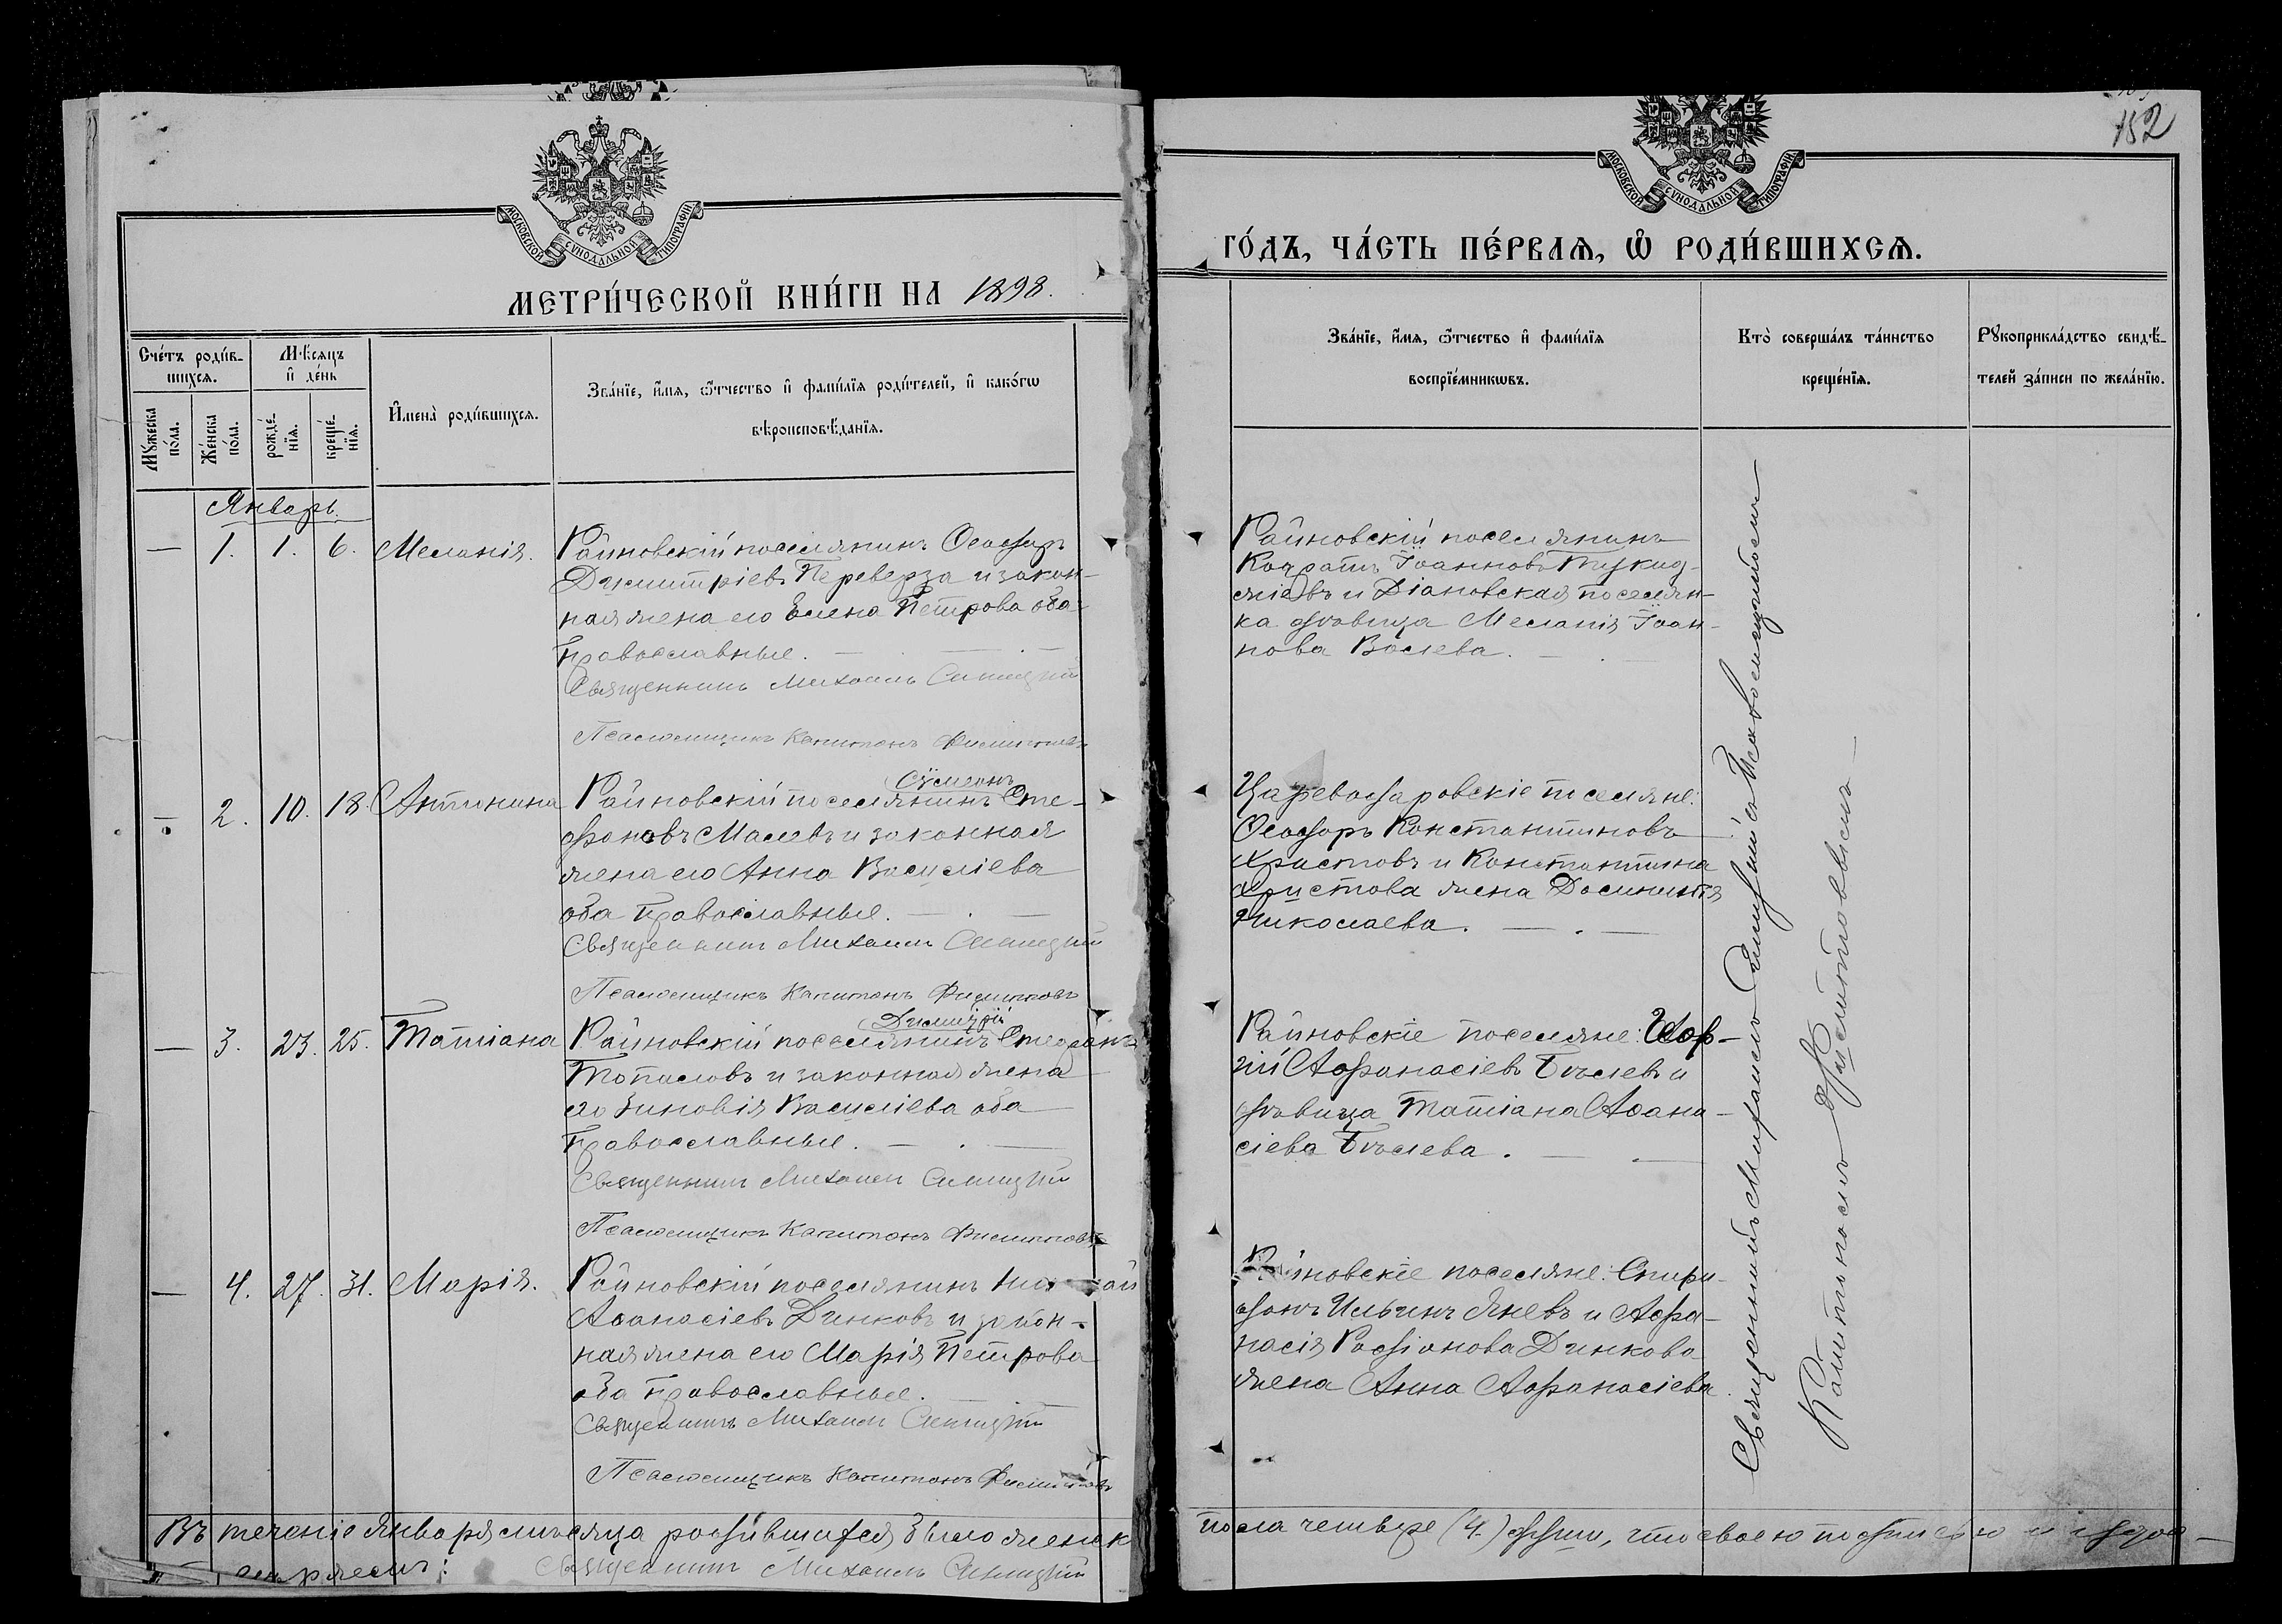 152
МОСКОВСКОЙ СѴНОДАЛЬНОЙ ТИПОГРАФІИ
МОСКОВСКОЙ СѴНОДАЛЬНОЙ ТИПОГРАФІИ
МЕТРИ́ЧЕСКОЙ КНИ́ГИ НА 1898.
ГО́ДЪ, ЧА́СТЬ ПЕ́РВАѦ, Ѡ҆ РОДИ́ВШИХСѦ.
Сче́тъ роди́в-
шихсѧ.
Мꙋ́жеска
по́ла.
Же́нска
по́ла.
Мѣ́сѧцъ
и҆ де́нь
рожде́-
нїѧ.
креще́-
нїѧ.
И҆мена̀ роди́вшихсѧ.
Зва́нїе, и҆́мѧ, ѻ҆́тчество и҆ фами́лїѧ роди́телей, и҆ како́гѡ
вѣроисповѣ́данїѧ.
Зва́нїе, и҆́мѧ, ѻ҆́тчество и҆ фами́лїѧ
воспрїе́мникѡвъ.
Кто̀ соверша́лъ та́инство
креще́нїѧ.
Рꙋкоприкла́дство свидѣ́-
телей за́писи по жела́нїю.
Январь.
— 1. 1. 6. Меланія.
Райновскій поселянинъ Ѳеодоръ
Димитріевъ Переверза и закон-
ная жена его Елена Петрова оба
Православные.
Священникъ Михаилъ Синицкій
Псаломщикъ Капитонъ Филиповъ
Райновскій поселянинъ
Кондратъ Іоанновъ
и Діановская поселян-
ка дѣвица Меланія Іоан-
нова Волева.
— 2. 10. 18. Антонина
Сѵмеонъ
Райновскій поселянинъ Сте-
фановъ Малевъ и законная
жена его Анна Василіева
оба Православные.
Священникъ Михаилъ Синицкій
Псаломщикъ Капитонъ Филиповъ
Цареводаровскіе поселяне:
Ѳеодоръ Константиновъ
Христовъ и Константина
Христова жена Доминикія
Николаева.
— 3. 23. 25. Татіана
Димитрій
Райновскій поселянинъ Стефановъ
Топаловъ и законная жена
его Зиновія Василіева оба
Православные.
Священникъ Михаилъ Синицкій
Псаломщикъ Капитонъ Филиповъ
Райновскіе поселяне: Геор-
гій Афанасіевъ Бѣлевъ и
дѣвица Татіана Аѳана-
сіева Бѣлева.
— 4. 27. 31. Марія.
Райновскій поселянинъ
Аѳанасіевъ Динковъ и закон-
ная жена его Марія Петрова
оба Православные.
Священникъ Михаилъ Синицкій
Псаломщикъ Капитонъ Филиповъ
Райновскіе поселяне: Спири-
донъ Ильинъ Яневъ и Афа-
насія Родіонова Динкова
жена Анна Афанасіева.
Священникъ Михаилъ Синицкій съ Псаломщикомъ
Капитономъ Филиповымъ
Въ теченіе Января мѣсяца родившихся было женск
пола четыре (4.) души, что своею подписью и удос-